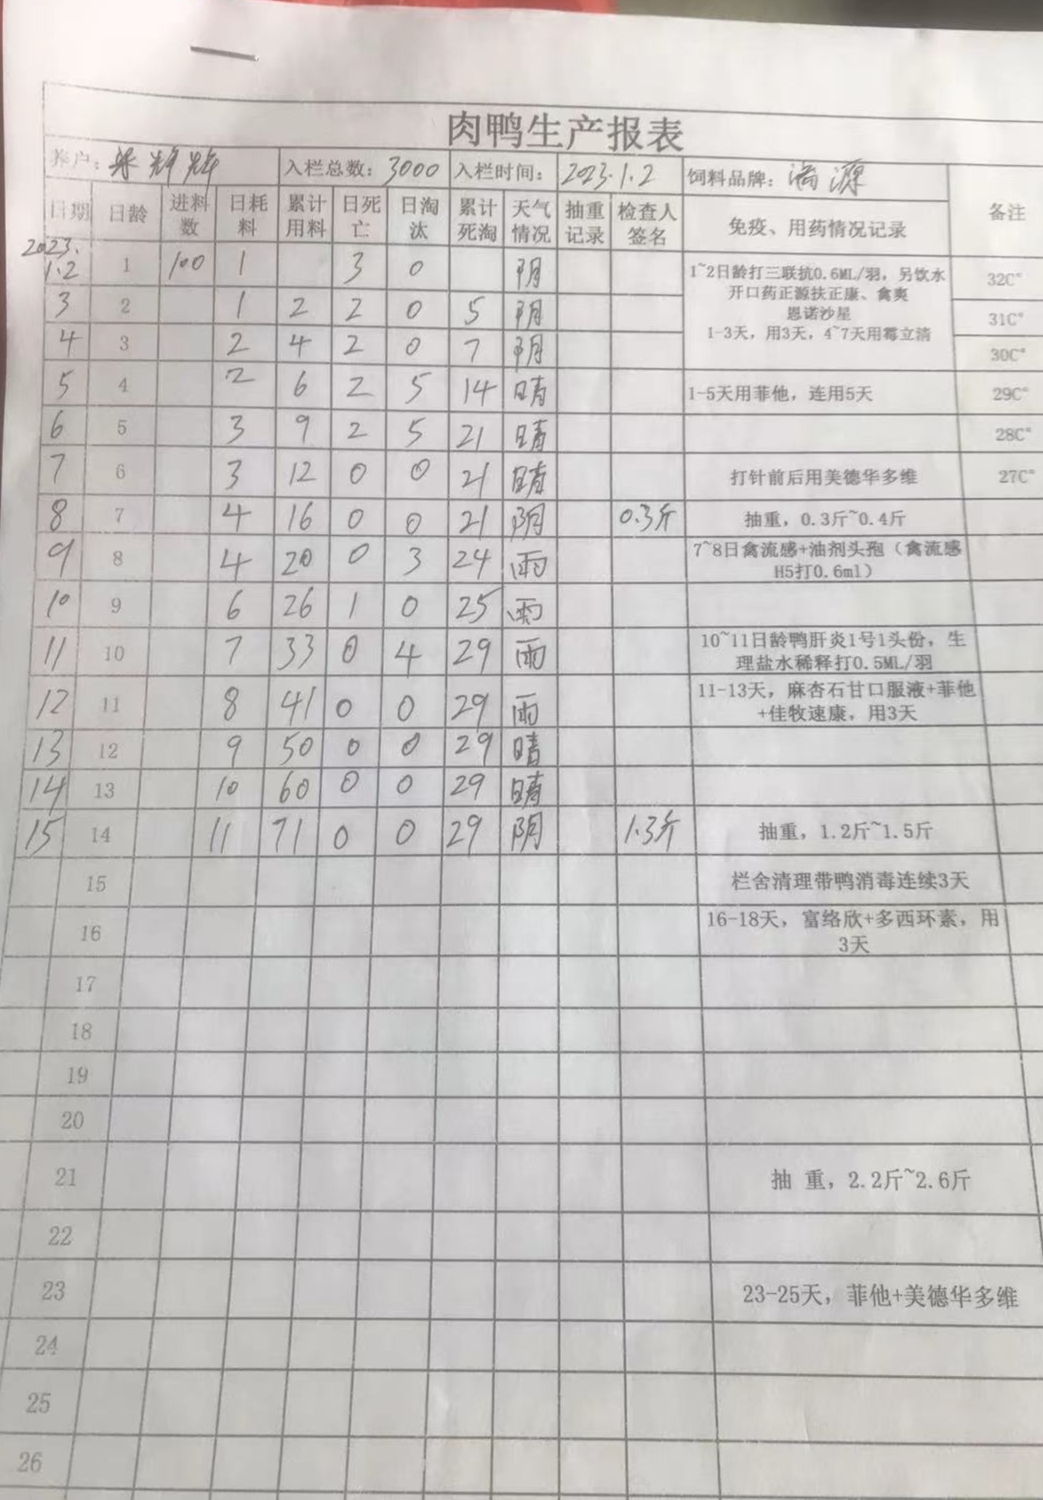 肉鸭生产报表
养户： 入栏总数：3000 入栏时间：2023.1.2 饲料品牌：满源
日期 日龄 进料数 日耗料 累计用料 日死亡 日淘汰 累计死淘 天气情况 抽重记录 检查人签名 免疫、用药情况记录 备注
2023.1.2 1 100 1 3 0 阴 1~2日龄打三联抗0.6ML/羽，另饮水 32C°
开口药正源扶正康、禽爽
3 2 1 2 2 0 5 阴 恩诺沙星 31C°
4 3 2 4 2 0 7 阴 1-3天，用3天，4~7天用霉立清 30C°
5 4 2 6 2 5 14 晴 1-5天用菲他，连用5天 29C°
6 5 3 9 2 5 21 晴 28C°
7 6 3 12 0 0 21 晴 打针前后用美德华多维 27C°
8 7 4 16 0 0 21 阴 0.3斤 抽重，0.3斤~0.4斤
9 8 4 20 0 3 24 雨 7~8日禽流感+油剂头孢（禽流感
H5打0.6ml）
10 9 6 26 1 0 25 雨
11 10 7 33 0 4 29 雨 10~11日龄鸭肝炎1号1头份，生
理盐水稀释打0.5ML/羽
12 11 8 41 0 0 29 雨 11-13天，麻杏石甘口服液+菲他
+佳牧速康，用3天
13 12 9 50 0 0 29 晴
14 13 10 60 0 0 29 晴
15 14 11 71 0 0 29 阴 1.3斤 抽重，1.2斤~1.5斤
15 栏舍清理带鸭消毒连续3天
16 16-18天，富络欣+多西环素，用
3天
17
18
19
20
21 抽 重，2.2斤~2.6斤
22
23 23-25天，菲他+美德华多维
24
25
26